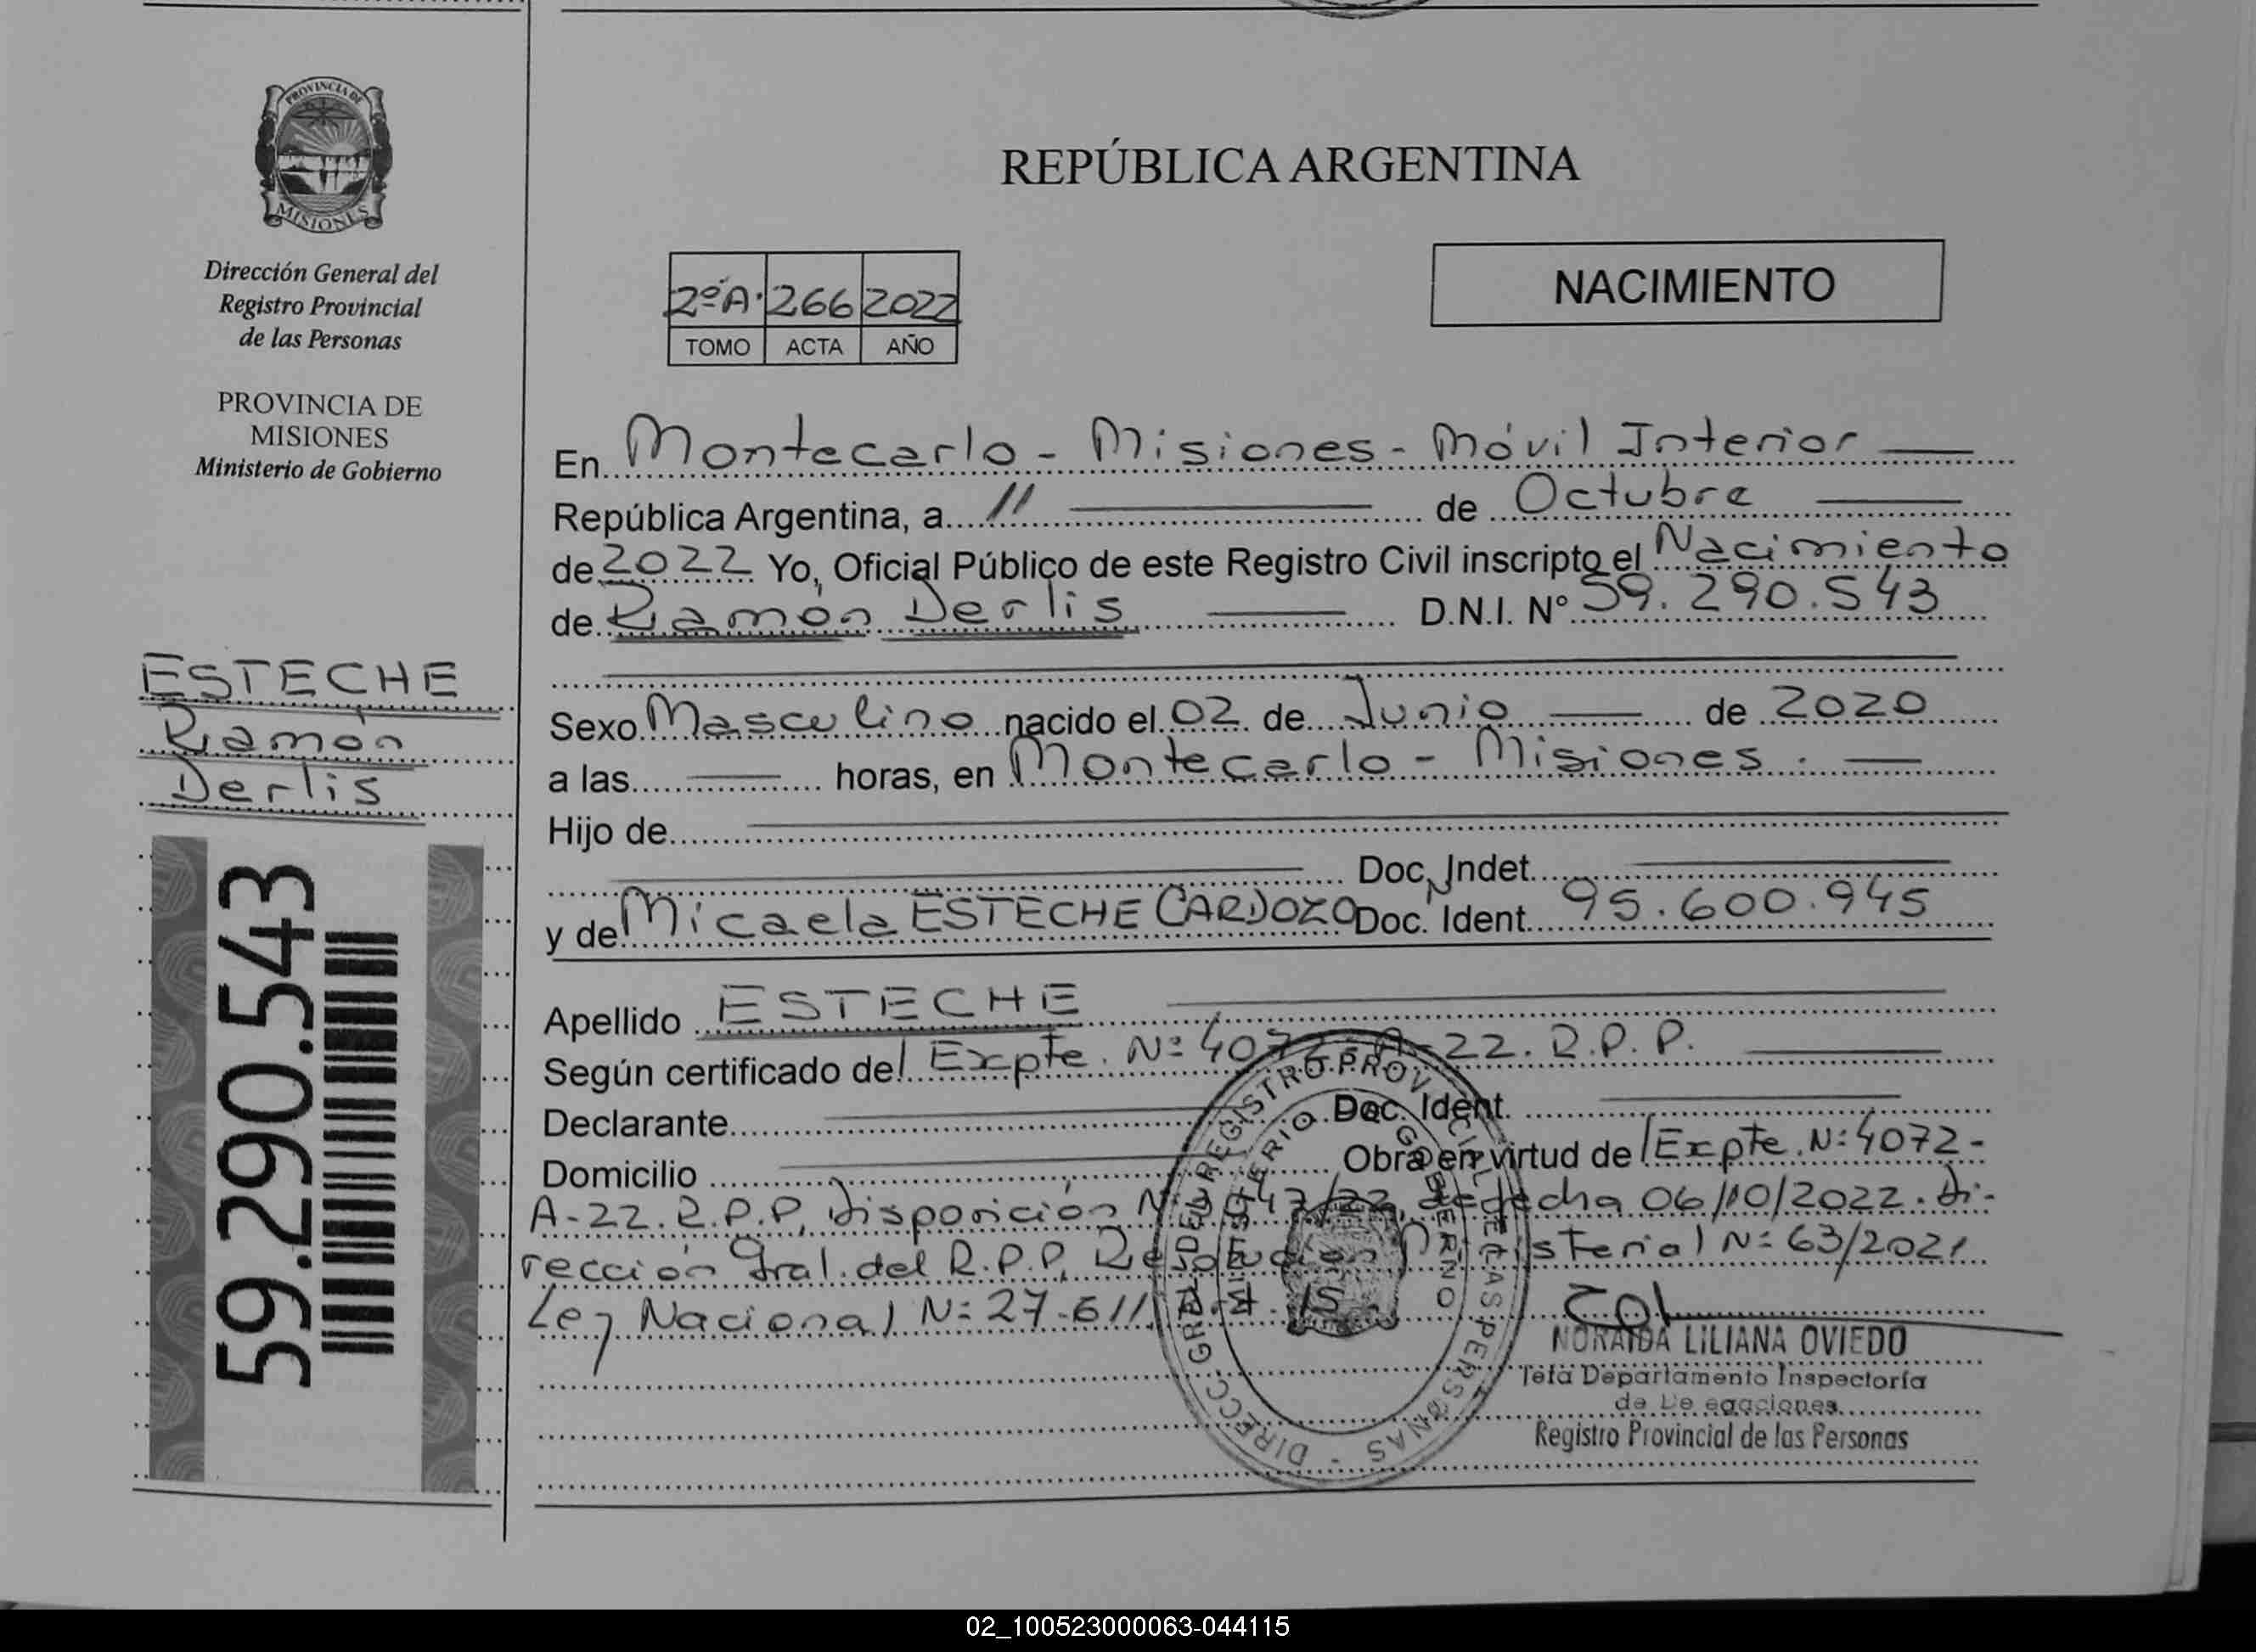 PROVINCIA DE
MISIONES
Dirección General del
Registro Provincial
de las Personas
PROVINCIA DE
MISIONES
Ministerio de Gobierno
ESTECHE
Ramón
Derlis
59.290.543
REPÚBLICA ARGENTINA
2º A. 266 2022
TOMO ACTA AÑO
NACIMIENTO
En Montecarlo - Misiones - Móvil Interior
República Argentina, a 11 de Octubre
de 2022 Yo, Oficial Público de este Registro Civil inscripto el Nacimiento
de Ramón Derlis D.N.I. Nº 59.290.543
Sexo Masculino nacido el 02 de Junio de 2020
a las horas, en Montecarlo - Misiones.
Hijo de
Doc. Indet.
y de Micaela ESTECHE CARDOZO Doc. Ident. 95.600.945
Apellido ESTECHE
Según certificado del Expte. Nº 4072-A-22. R.P.P.
Declarante Doc. Ident.
Domicilio Obra en virtud de Expte. Nº 4072-
A-22. R.P.P, Disposición de fecha 06/10/2022. Di-
rección Gral. del R.P.P, Resolución Ministerial Nº 63/2021
Ley Nacional Nº 27.611, Art. 15.
DIRECC. GRAL. DEL REGISTRO PROVINCIAL DE LAS PERSONAS
MINISTERIO DE GOBIERNO
NORAIDA LILIANA OVIEDO
Jefa Departamento Inspectoría
de Delegaciones
Registro Provincial de las Personas
02_100523000063-044115